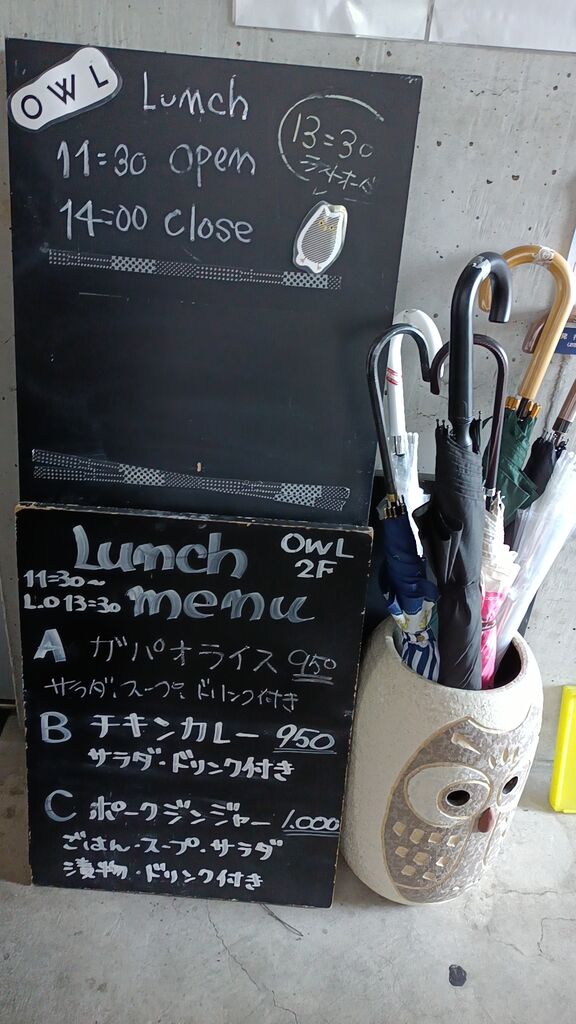 OWL
Lunch
11=30 open
14=00 close
13=30
ラストオーダー
Lunch
menu
OWL
2F
11=30~
L.O 13=30
A ガパオライス 950
サラダ・スープ・ドリンク付き
B チキンカレー 950
サラダ・ドリンク付き
C ポークジンジャー 1.000
ごはん・スープ・サラダ
漬物・ドリンク付き